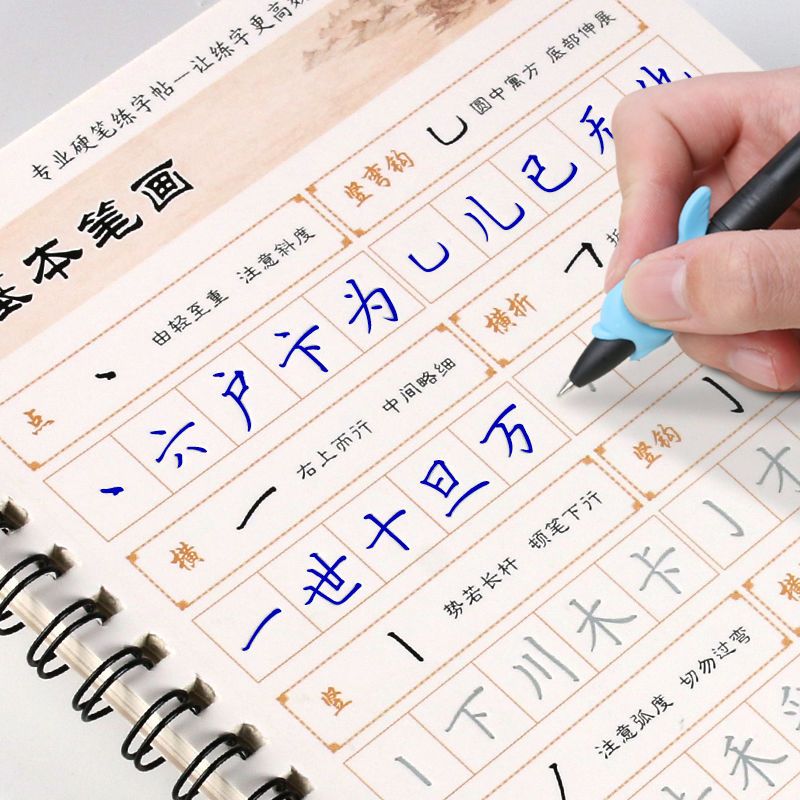 专业硬笔练字帖—让练字更高效
基本笔画
点 丶 由轻至重 注意斜度
丶 六 户 卞 为
竖弯钩 乚 圆中寓方 底部伸展
乚 儿 己
横 一 右上而行 中间略细
一 世 十 旦 万
横折 𠃍
竖 丨 势若长杆 顿笔下行
丨 下 川 木 卡
竖钩 亅
亅
注意弧度 切勿过弯
禾